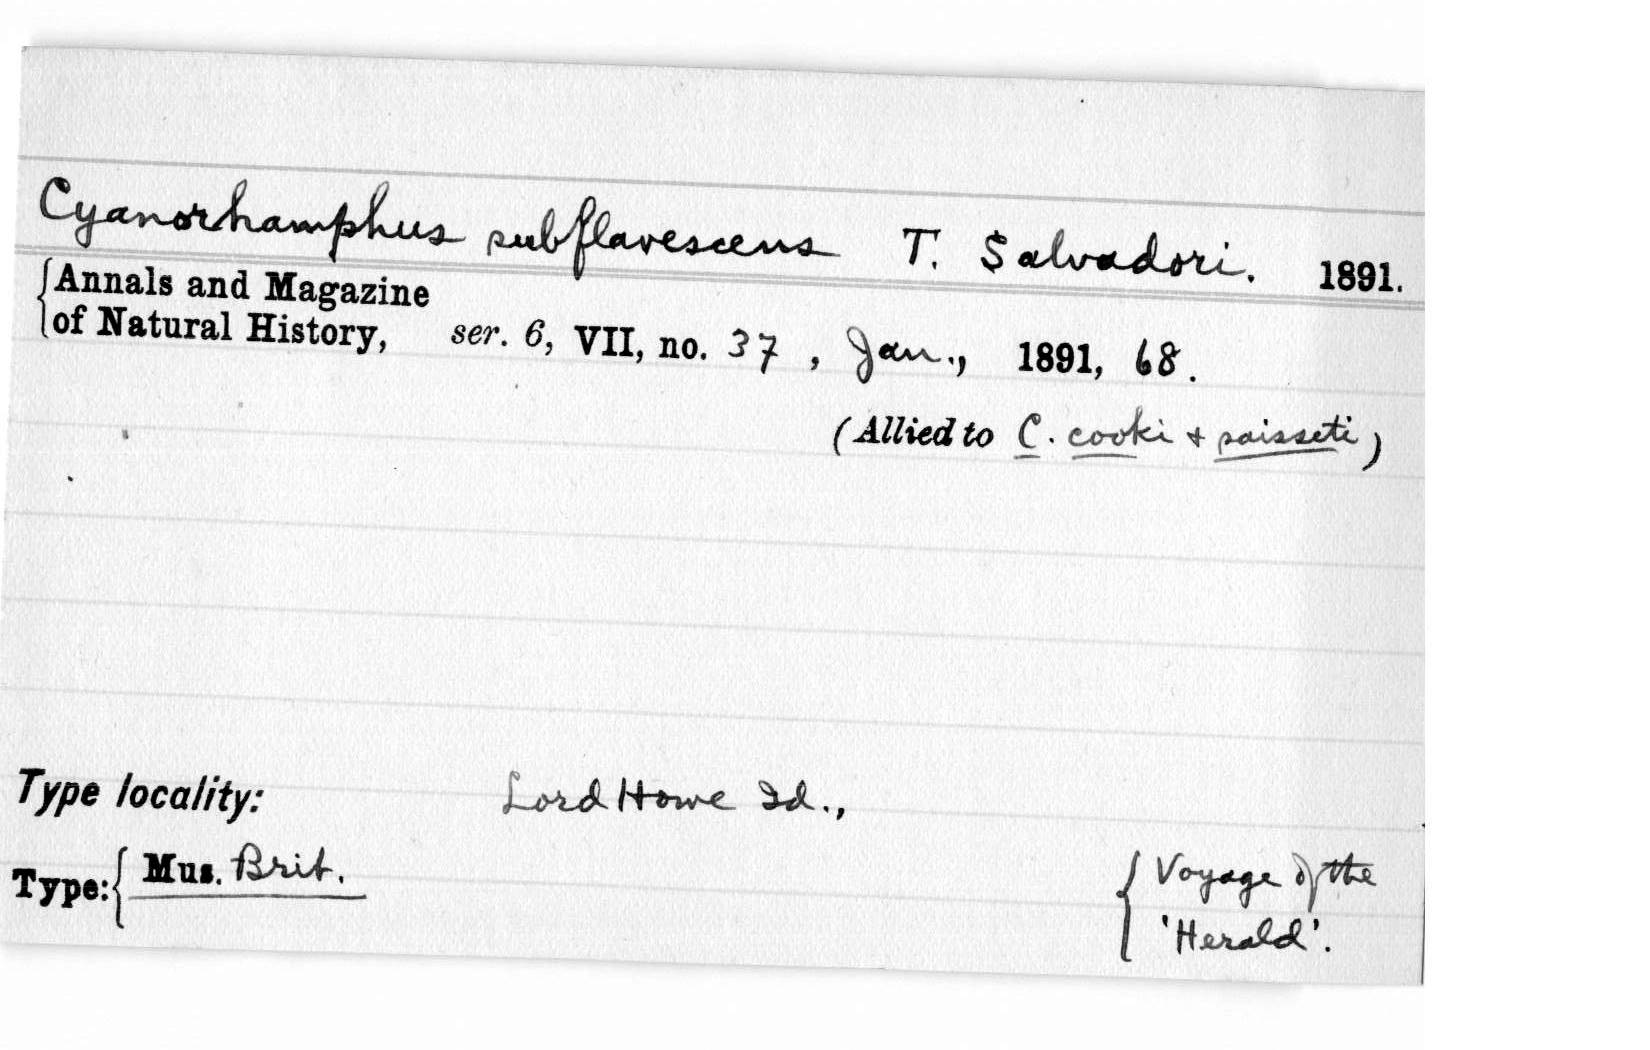 Cyanorhamphus subflavescens T. Salvadori. 1891.
Annals and Magazine
of Natural History, ser. 6, VII, no. 37, Jan., 1891, 68.
(Allied to C. cooki + saisseti)
Type locality: Lord Howe Id.,
Type: Mus. Brit.
Voyage of the
'Herald'.